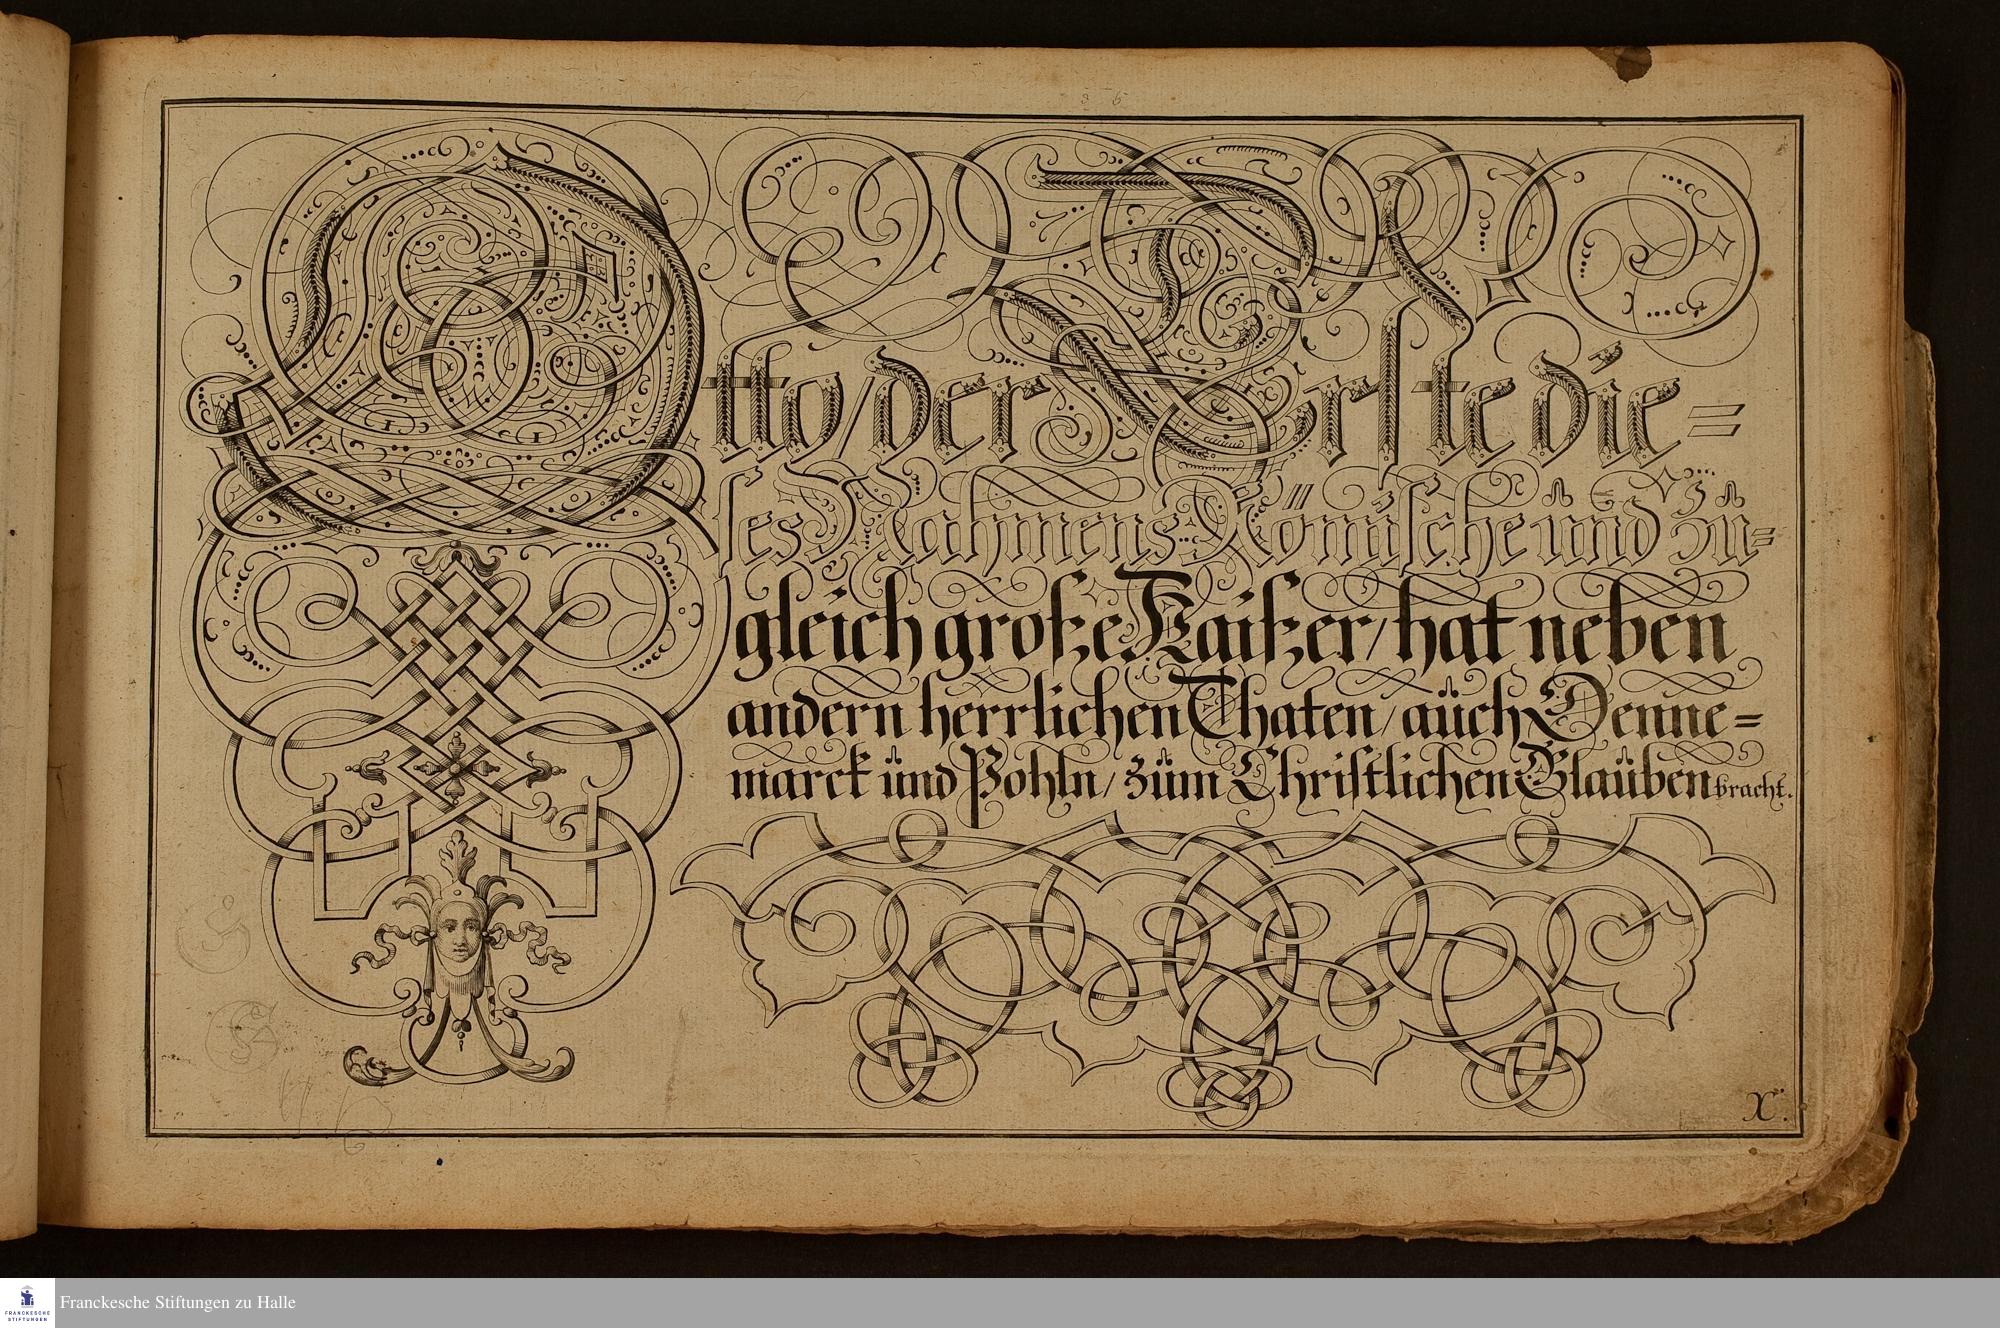 Otto/der Erste die=
ses Nahmens Römische und zu=
gleich große Kaißer/hat neben
andern herrlichen Thaten/auch Denne=
marck und Pohln/zum Christlichen Glauben bracht.
X.
Franckesche Stiftungen zu Halle
FRANCKESCHE
STIFTUNGEN